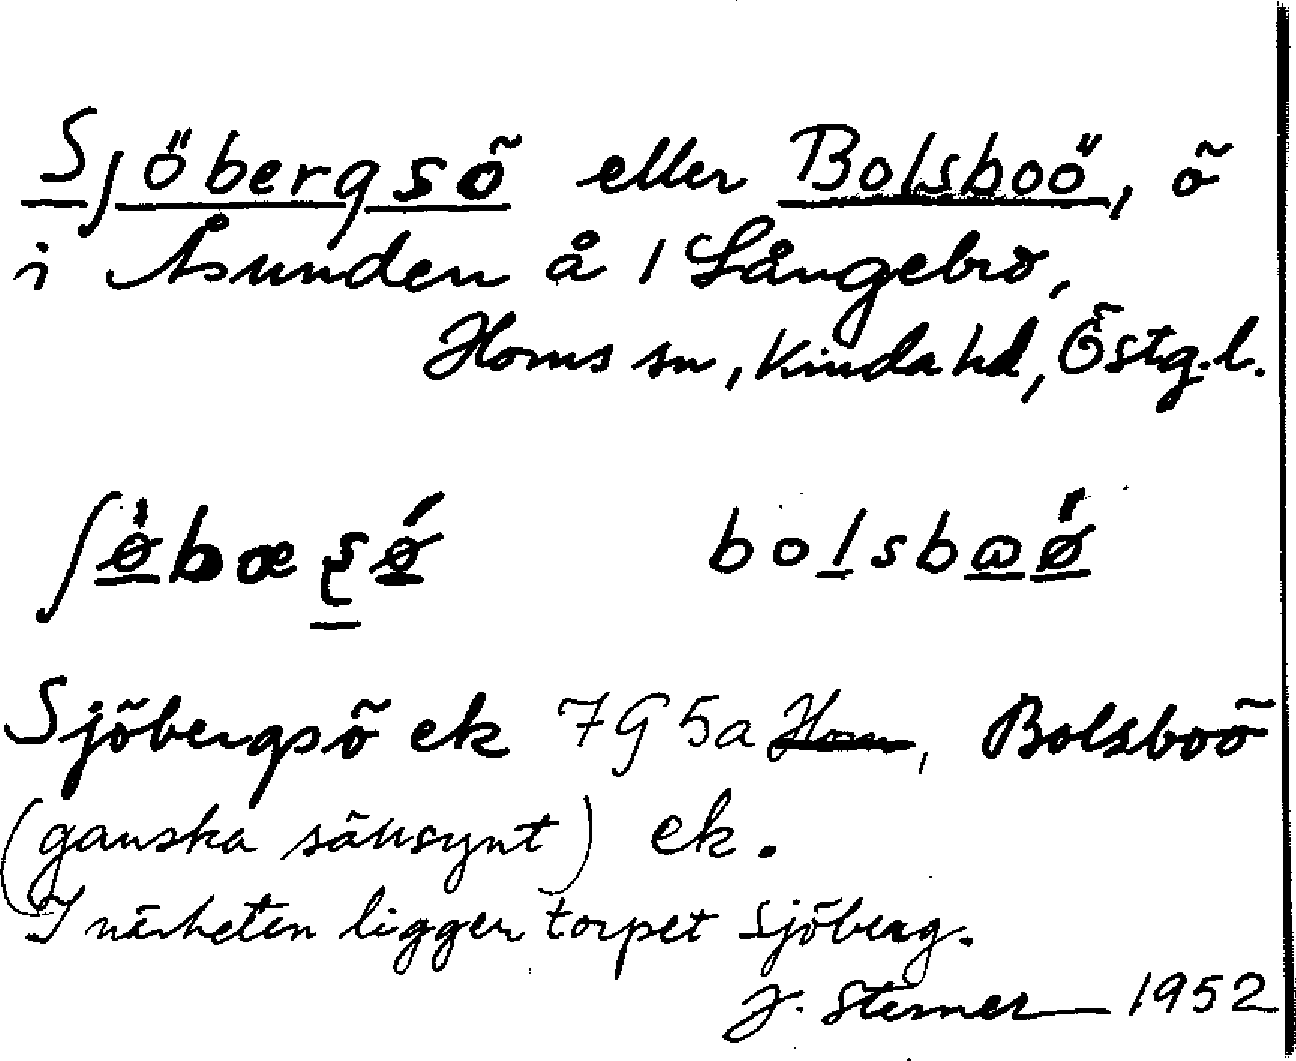 Sjöbergsö eller Bolsboö, ö
i Åsunden å 1 Långebro,
Horns sn, Kinda hd, Östg.l.
ʃø̀bæʂǿ bolsbaǿ
Sjöbergsö ek 7G 5a Horn, Bolsboö
(ganska sällsynt) ek.
I närheten ligger torpet Sjöberg.
J. Sterner 1952